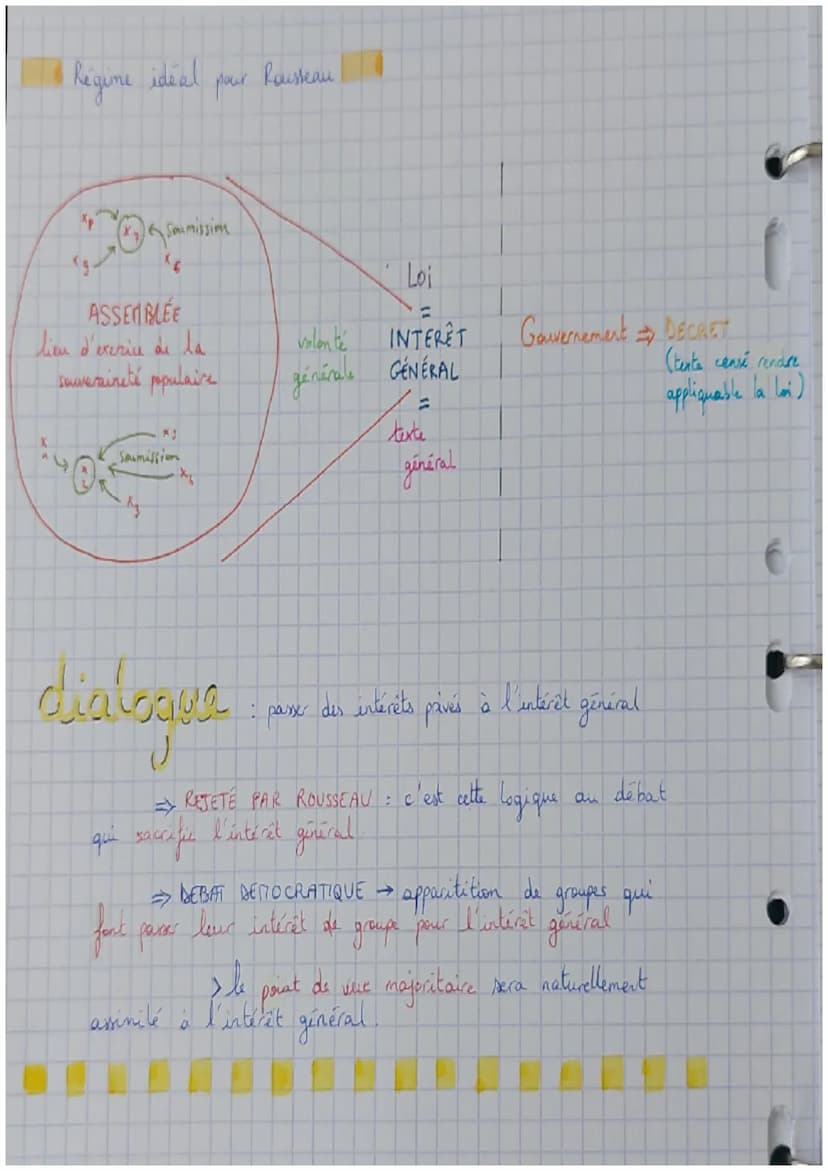 Régime idéal pour Rousseau
soumission
ASSEMBLÉE
lieu d'exercice de la
souveraineté populaire
soumission
volonté
générale
Loi
=
INTERÊT
GÉNÉRAL
=
texte
général
Gouvernement ⇒ DÉCRET
(texte censé rendre
appliquable la loi)
dialogue : passer des intérêts privés à l'intérêt général
⇒ REJETÉ PAR ROUSSEAU : c'est cette logique au débat
qui sacrifie l'intérêt général
⇒ DEBAT DEMOCRATIQUE → apparitition de groupes qui
font passer leur intérêt de groupe pour l'intérêt général
> le point de vue majoritaire sera naturellement
assimilé à l'intérêt général.